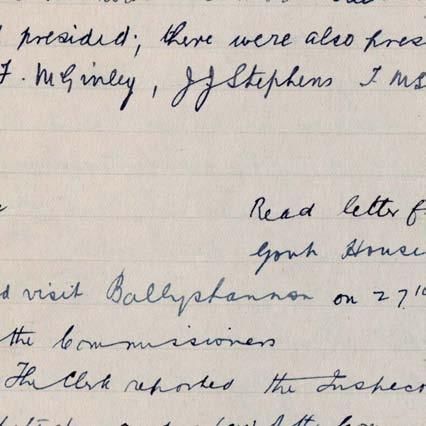 presided; there were also pres
F. McGinley, J J Stephens T McS
Read letter f
Govt House
d visit Ballyshannon on 27th
the Commissioners
The Clerk reported the Inspec